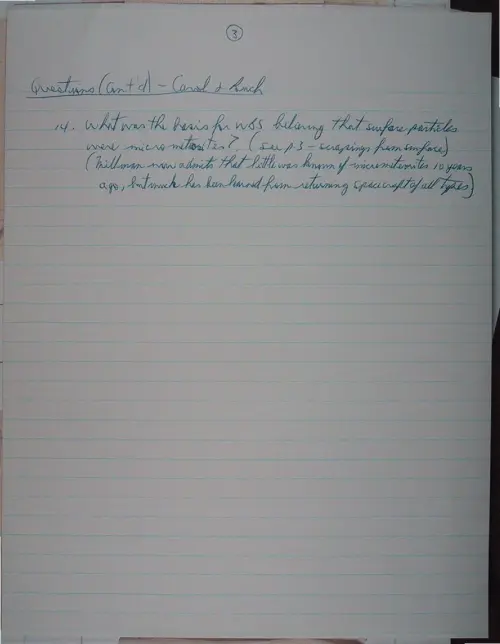 3
Questions (Cont'd) - Carol & 
14. What was the basis for WBS believing that surface particles
were micrometeorites? (see p3 - scrapings from surface)
(Millman now admits that little was known of micrometeorites 10 years
ago, but much has been learned from returning spacecraft of all types)